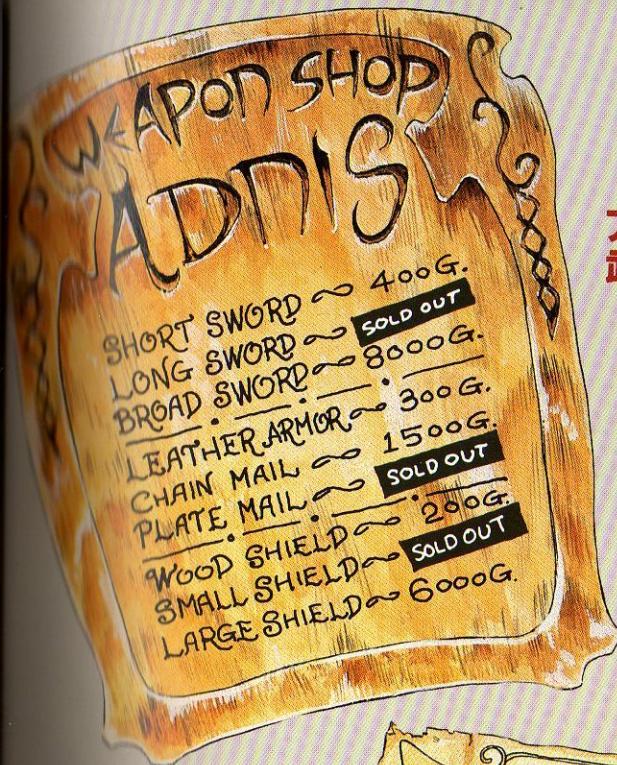 WEAPON SHOP
ADNIS
SHORT SWORD ~ 400G.
LONG SWORD ~ SOLD OUT
BROAD SWORD ~ 8000G.
LEATHER ARMOR ~ 300G.
CHAIN MAIL ~ 1500G.
PLATE MAIL ~ SOLD OUT
WOOD SHIELD ~ 200G.
SMALL SHIELD ~ SOLD OUT
LARGE SHIELD ~ 6000G.